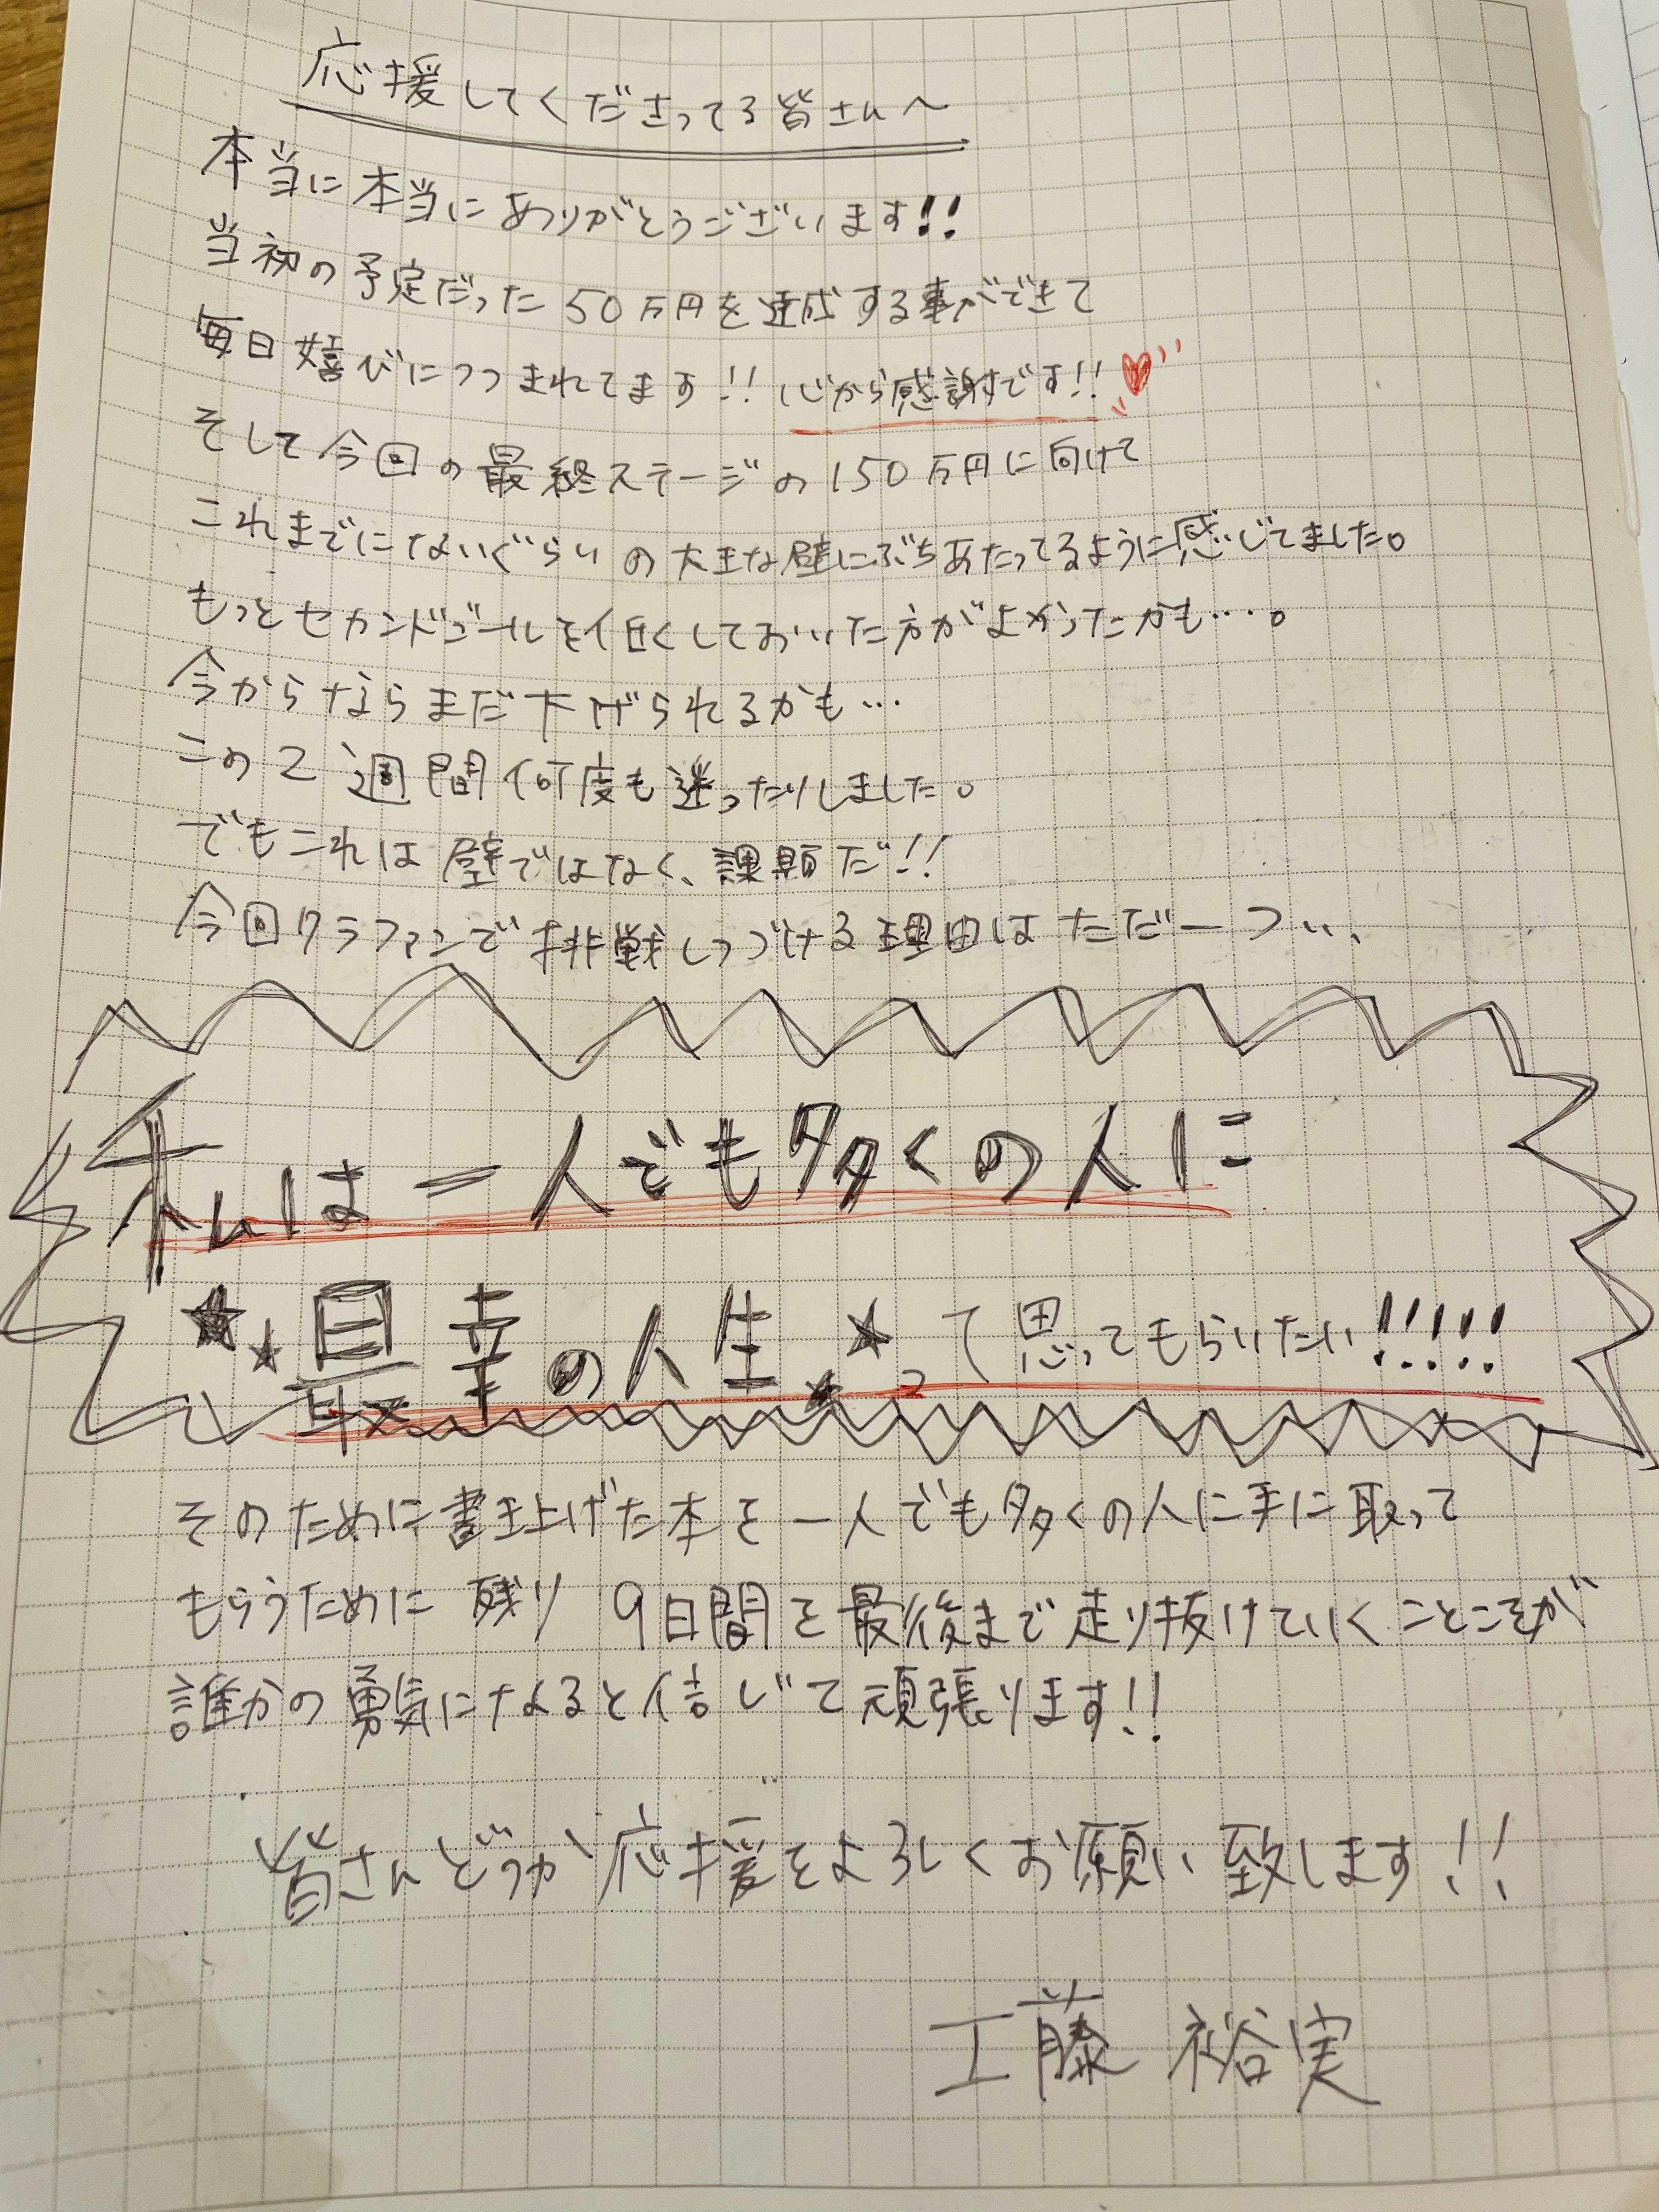 応援してくださってる皆さんへ
本当に本当にありがとうございます!!
当初の予定だった50万円を達成する事ができて
毎日嬉びにつつまれてます!! 心から感謝です!!
そして今回の最終ステージの150万円に向けて
これまでにないぐらいの大きな壁にぶちあたってるように感じてました。
もっとセカンドゴールを低くしておいた方がよかったかも…。
今からならまだ下げられるかも…
この2週間何度も迷ったりしました。
でもこれは壁ではなく、課題だ!!
今回クラファンで挑戦しつづける理由はただ一つ…
私は一人でも多くの人に
★★最幸の人生★★って思ってもらいたい!!!!!
そのために書き上げた本を一人でも多くの人に手に取って
もらうために残り9日間を最後まで走り抜けていくことこそが
誰かの勇気になると信じて頑張ります!!
皆さんどうか応援をよろしくお願い致します!!
工藤 裕実